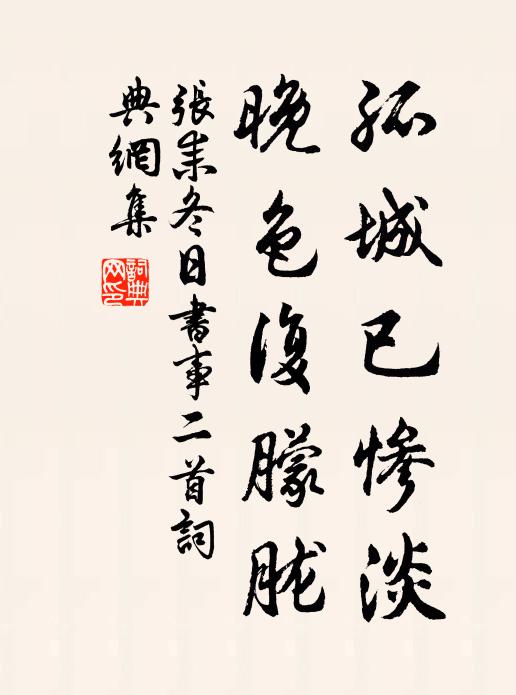 孤城已慘淡
晚色復朦胧
張耒冬日書事二首詞
典網集
詞典
网印